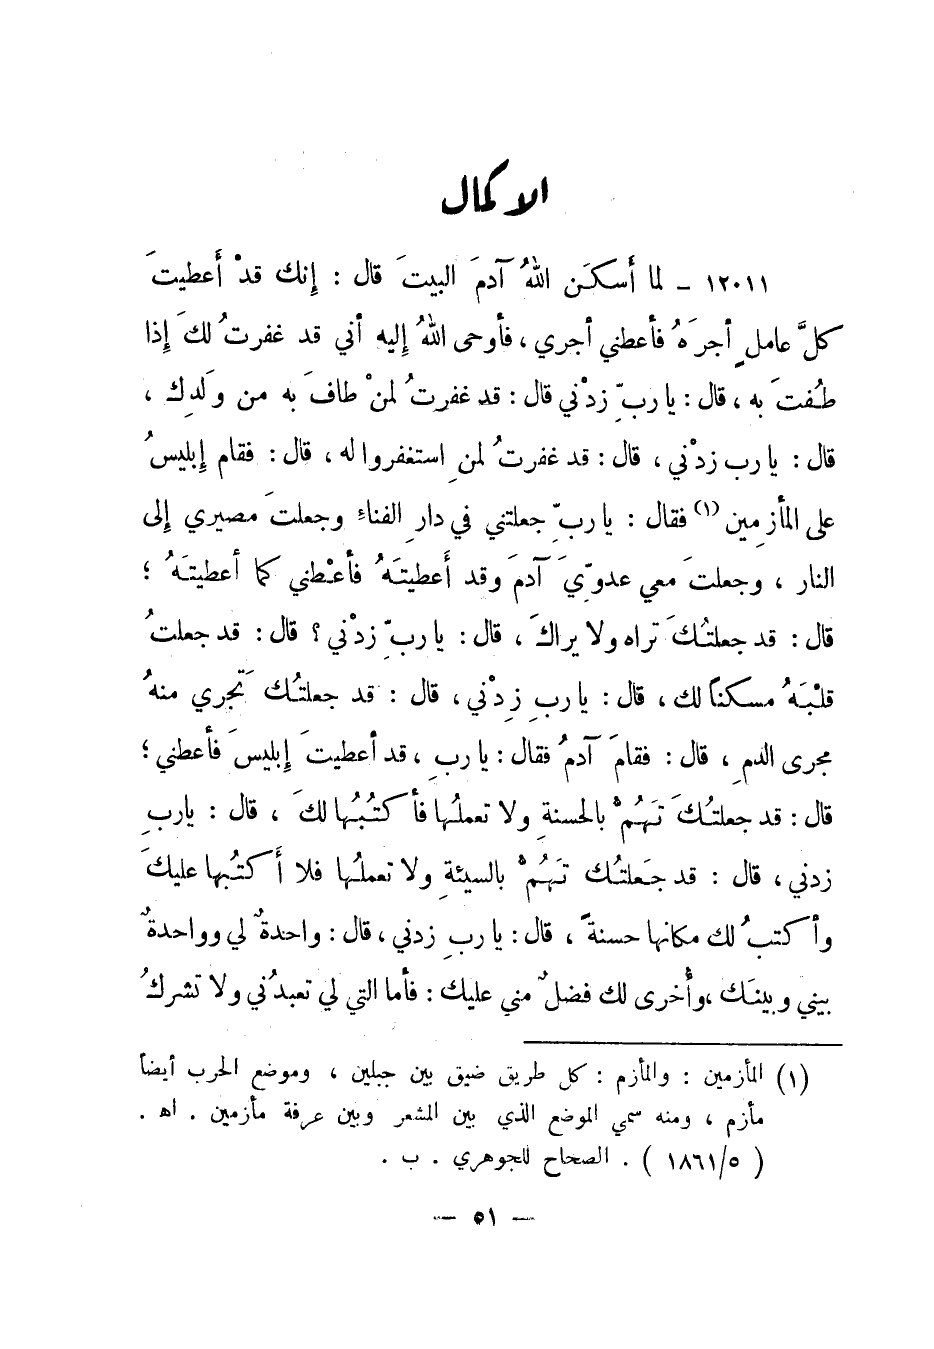 الاكمال
١٢٠١١ - لما أَسكَن اللهُ آدمَ البيتَ قال : إِنك قدْ أَعطيتَ
كلَّ عاملٍ أجرَهُ فأعطني أجري ، فأوحى اللهُ إليه أني قد غفرتُ لكَ إِذا
طُفتَ به ، قال : يا ربِّ زدْني قال : قد غفرتُ لمنْ طاف َ به من وَلدِك ،
قال : يا رب زدْني ، قال : قد غفرتُ لمنِ استغفروا له ، قال : فقام إِبليسُ
على المأزِمين (١) فقال : يا ربِّ جعلتني في دارِ الفناءِ وجعلتَ مصيري إلى
النار ، وجعلتَ معي عدوِّيَ آدمَ وقد أَعطيتَهُ فأعْطني كما أعطيتَهُ ؛
قال : قد جعلتُكَ تراه ولا يراكَ ، قال : يا ربِّ زدْني ؟ قال : قد جعلتُ
قلْبَهُ مسكناً لك ، قال : يا ربِ زِدْني ، قال : قد جعلتُك تَجري منهُ
مجرى الدمِ ، قال : فقامَ آدمُ فقال : يا ربِ ، قد أعطيتَ إِبليسَ فأعطني ؛
قال : قد جعلتُكَ تَهُمُّ بالحسنةِ ولا تعملُها فأكتُبُها لكَ ، قال : يا ربِ
زدني ، قال : قد جَعلتُك تَهُمُّ بالسيئةِ ولا تعملُها فلا أَكتُبها عليكَ
وأكتبُ لك مكانها حسنةً ، قال : يا ربِ زدني ، قال : واحدةٌ لي وواحدةٌ
بيني وبينَك ،وأُخرى لك فضلٌ مني عليك : فأما التي لي تعبدُني ولا تشركُ
(١) المأزمين : والمأزم : كل طريق ضيق بين جبلين ، وموضع الحرب أيضاً
مأزم ، ومنه سمي الموضع الذي بين المشعر وبين عرفة مأزمين . اه .
( ٥/١٨٦١ ) . الصحاح للجوهري . ب .
— ٥١ —